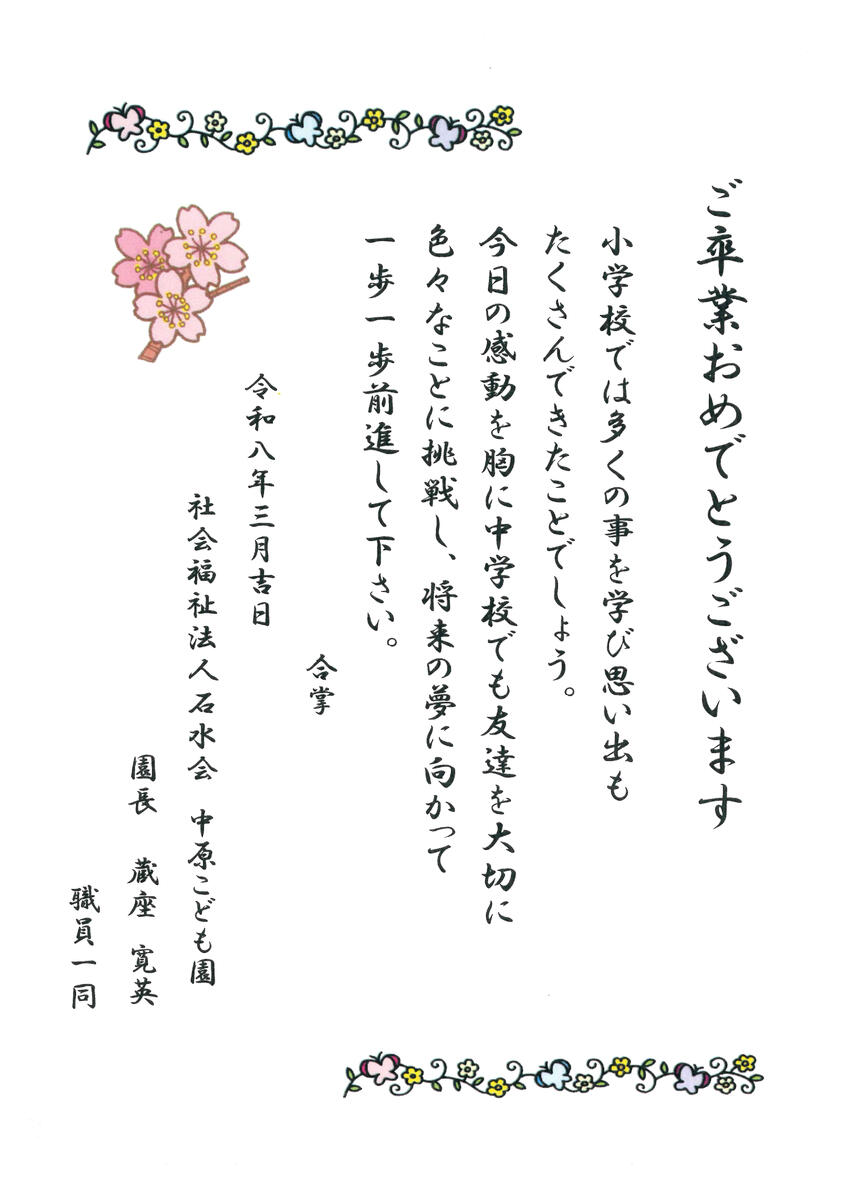 ご卒業おめでとうございます
小学校では多くの事を学び思い出も
たくさんできたことでしょう。
今日の感動を胸に中学校でも友達を大切に
色々なことに挑戦し、将来の夢に向かって
一歩一歩前進して下さい。
合掌
令和八年三月吉日
社会福祉法人石水会 中原こども園
園長 蔵座 寛英
職員一同